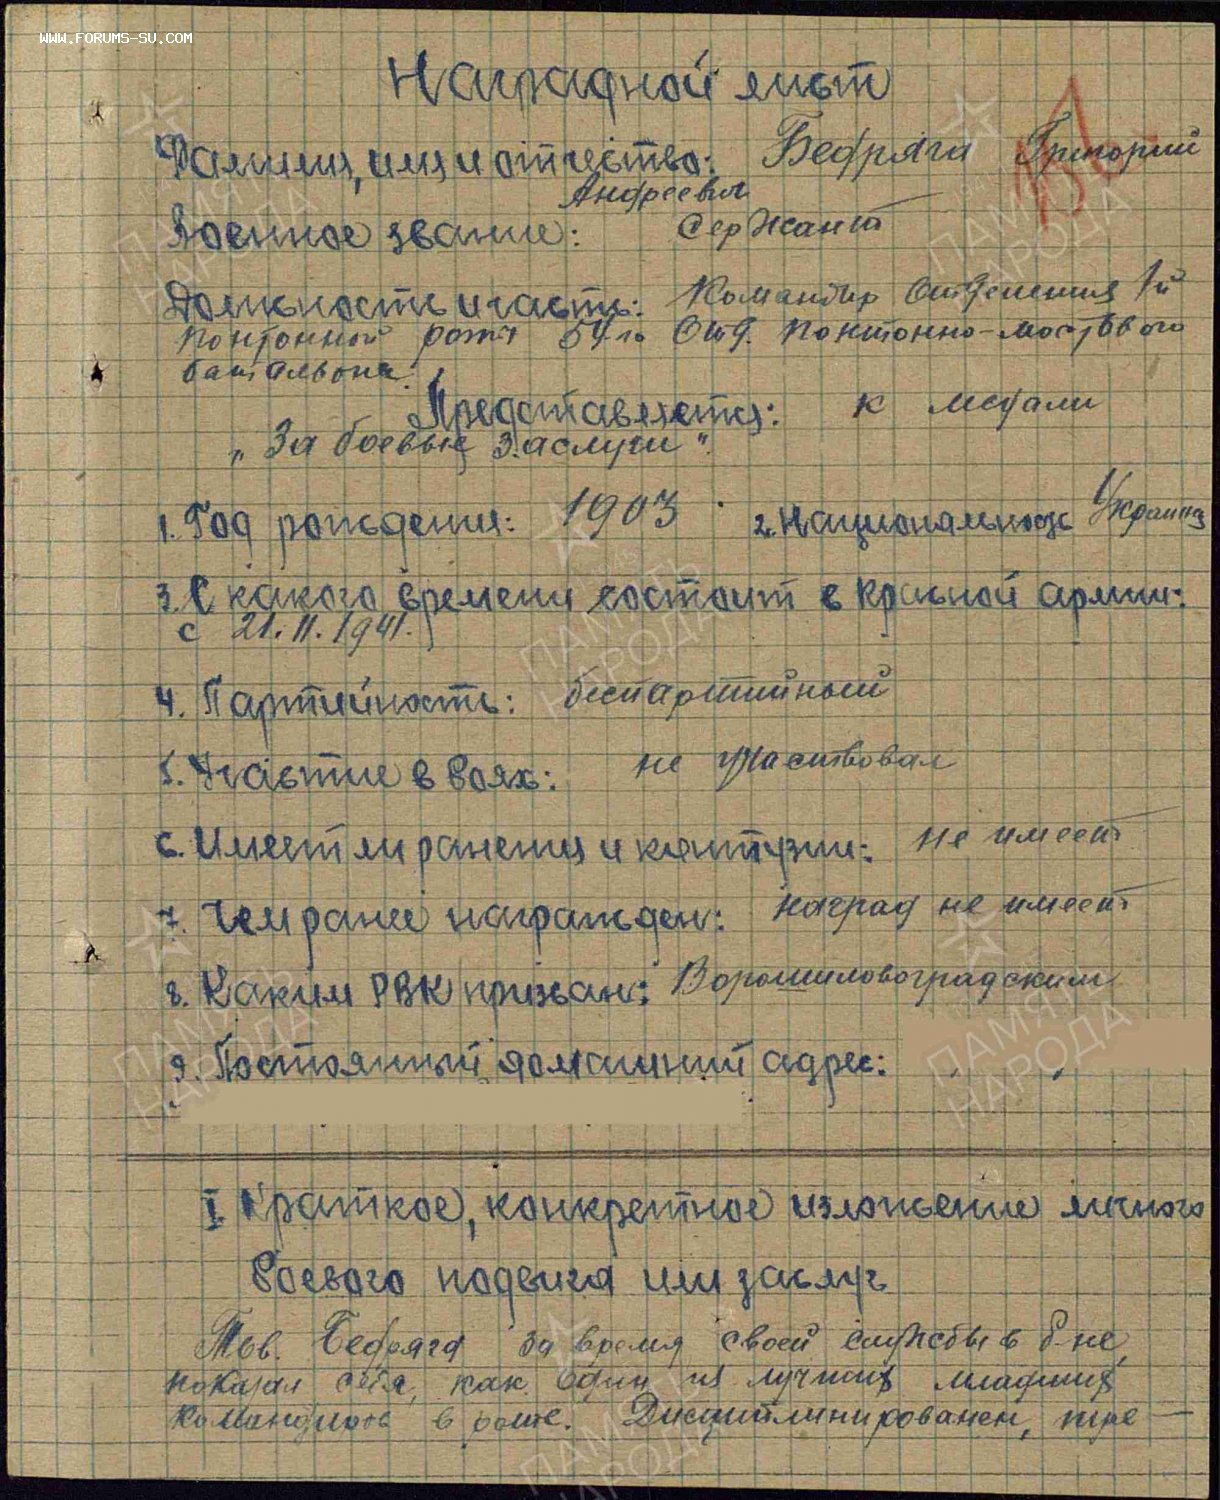 WWW.FORUMS-SU.COM
Наградной лист
Фамилия, имя и отчество: Бедряга Григорий
Андреевич
Военное звание: Сержант
Должность и часть: Командир Отделения 1й
понтонной роты 54го Отд. понтонно-мостового
батальона.
Представляется: к медали
„За боевые заслуги".
1. Год рождения: 1903 2. Национальность Украинец
3. С какого времени состоит в Красной армии:
с 21.11.1941.
4. Партийность: беспартийный
5. Участие в боях: не участвовал
6. Имеет ли ранения и контузии: не имеет
7. Чем ранее награжден: наград не имеет
8. Каким РВК призван: Ворошиловоградским
9. Постоянный домашний адрес:
I Краткое, конкретное изложение личного
боевого подвига или заслуг
Тов. Бедряга за время своей службы в б-не,
показал себя, как один из лучших младших
командиров в роте. Дисциплинирован, тре-
ПАМЯТЬ
НАРОДА